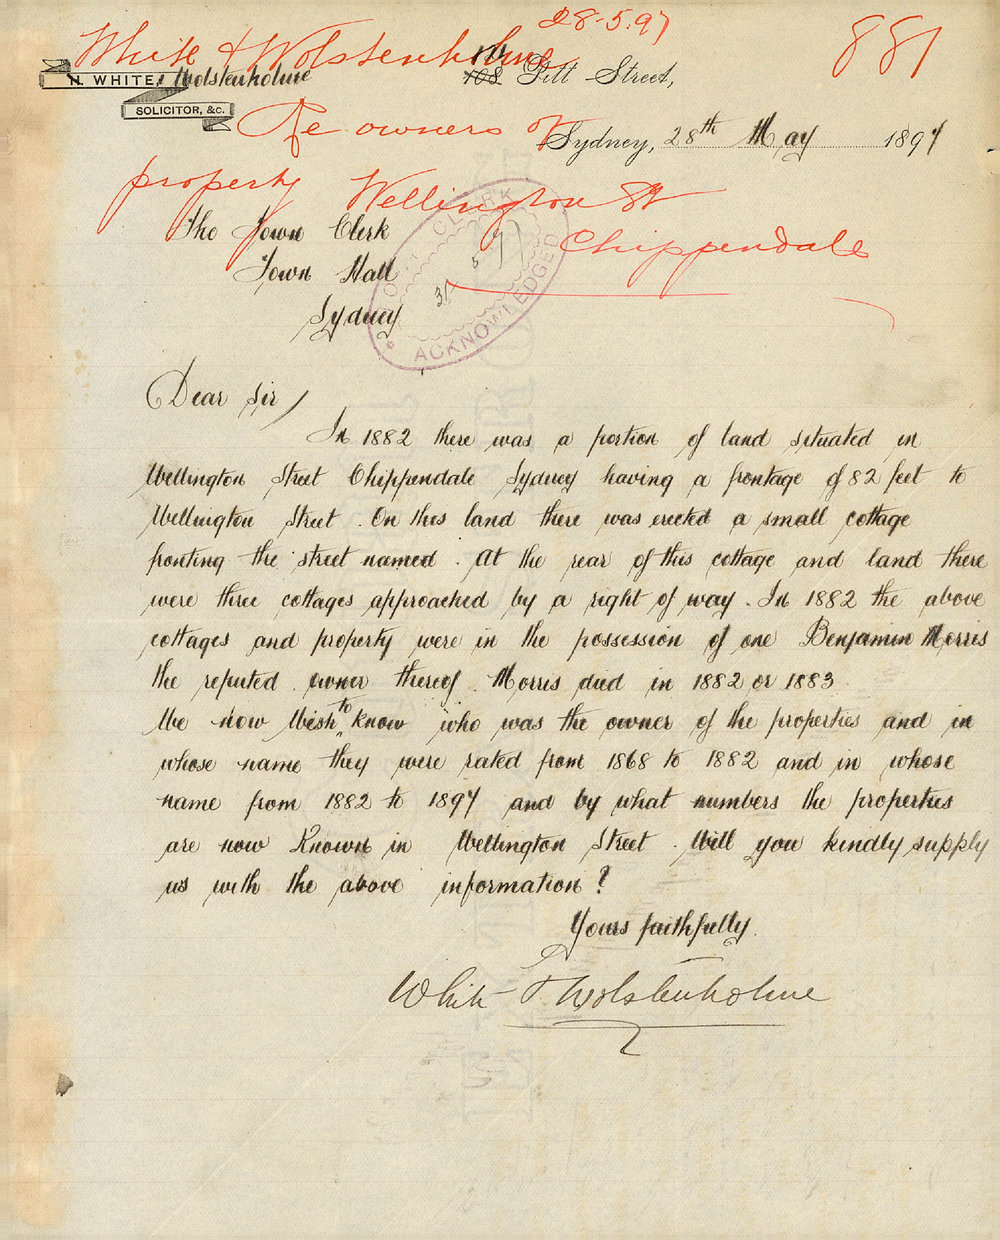 28.5.97
White & Wolstenholme 881
N. WHITE, & Wolstenholme 108 Pitt Street,
SOLICITOR, &c.
Re owners of
Sydney, 28th May 1897
property Wellington St
Chippendale
The Town Clerk
Town Hall
Sydney
TOWN CLERK
31 5 97
ACKNOWLEDGED
Dear Sir,
In 1882 there was a portion of land situated in
Wellington Street Chippendale Sydney having a frontage of 82 feet to
Wellington Street. On this land there was erected a small cottage
fronting the street named. At the rear of this cottage and land there
were three cottages approached by a right of way. In 1882 the above
cottages and property were in the possession of one Benjamin Morris
the reputed owner thereof. Morris died in 1882 or 1883
We now Wish to know who was the owner of the properties and in
whose name they were rated from 1868 to 1882 and in whose
name from 1882 to 1897 and by what numbers the properties
are now Known in Wellington Street. Will you kindly supply
us with the above information?
Yours faithfully.
White & Wolstenholme